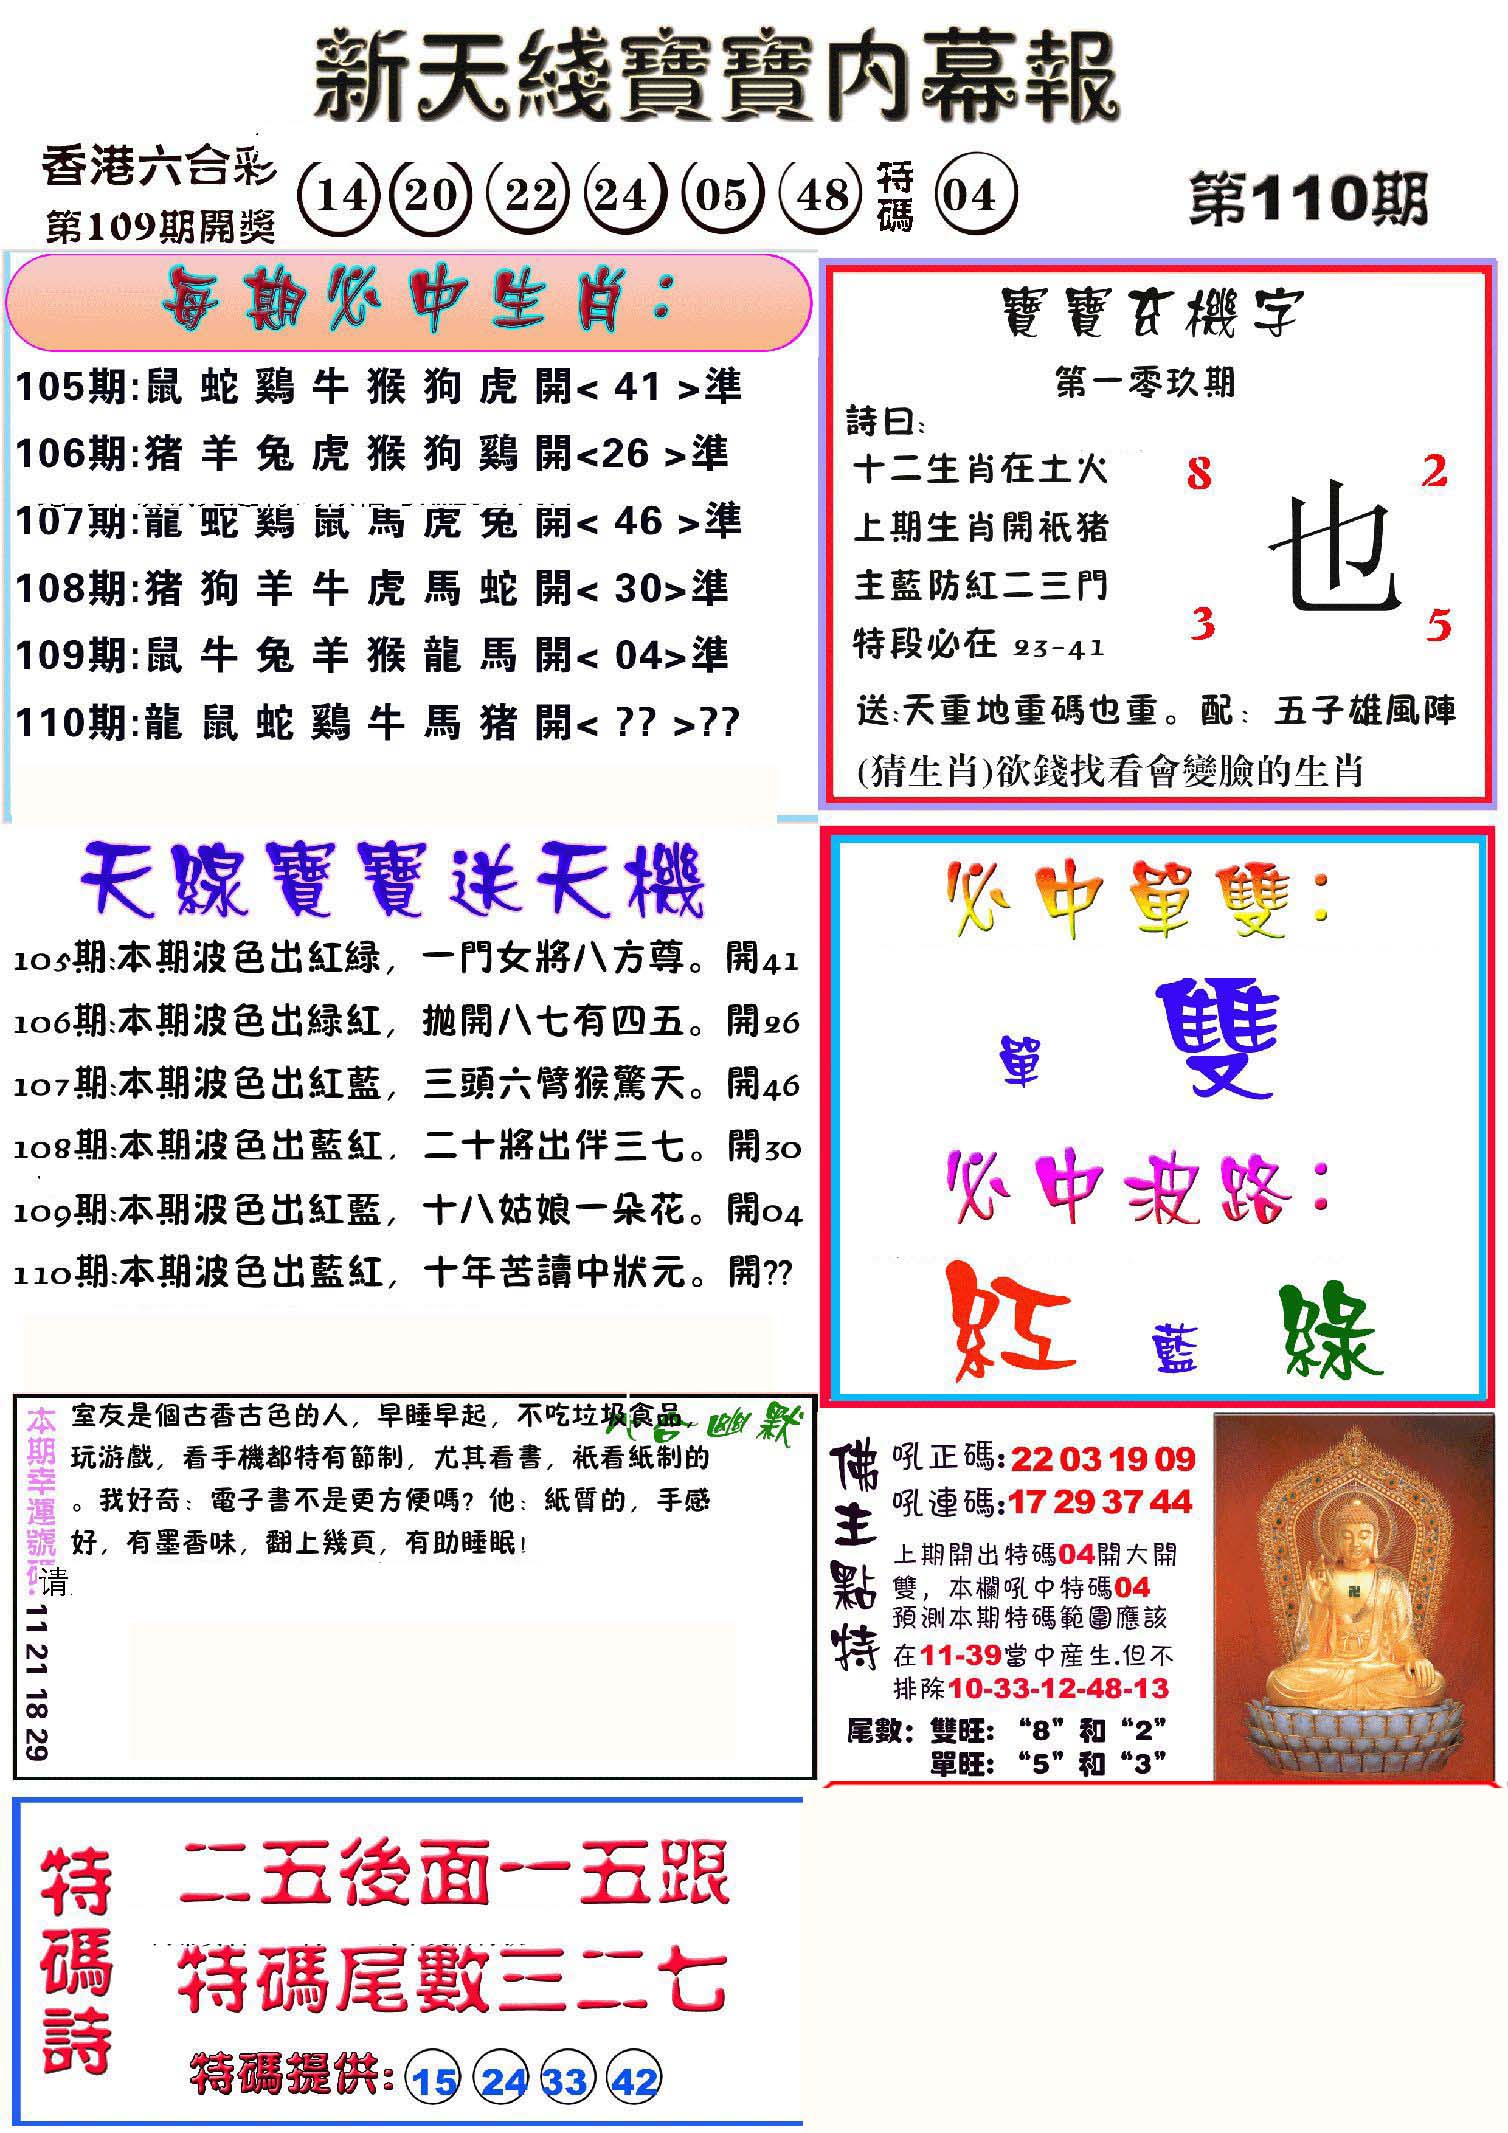 新天綫寶寶内幕報
香港六合彩
第109期開獎
14 20 22 24 05 48 特碼 04
第110期
每期必中生肖：
105期:鼠 蛇 鷄 牛 猴 狗 虎 開< 41 >準
106期:猪 羊 兔 虎 猴 狗 鷄 開<26 >準
107期:龍 蛇 鷄 鼠 馬 虎 兔 開< 46 >準
108期:猪 狗 羊 牛 虎 馬 蛇 開< 30>準
109期:鼠 牛 兔 羊 猴 龍 馬 開< 04>準
110期:龍 鼠 蛇 鷄 牛 馬 猪 開< ?? >??
寶寶玄機字
第一零玖期
詩曰:
十二生肖在土火
上期生肖開衹猪
主藍防紅二三門
特段必在 23-41
8 2
也
3 5
送:天重地重碼也重。配：五子雄風陣
(猜生肖)欲錢找看會變臉的生肖
天線寶寶送天機
105期:本期波色出紅緑，一門女將八方尊。開41
106期:本期波色出緑紅，抛開八七有四五。開26
107期:本期波色出紅藍，三頭六臂猴驚天。開46
108期:本期波色出藍紅，二十將出伴三七。開30
109期:本期波色出紅藍，十八姑娘一朵花。開04
110期:本期波色出藍紅，十年苦讀中狀元。開??
必中單雙：
單 雙
必中波路：
紅 藍 綠
本期幸運號碼:
11 21 18 29
六合幽默
室友是個古香古色的人，早睡早起，不吃垃圾食品，
玩游戲，看手機都特有節制，尤其看書，衹看紙制的
。我好奇：電子書不是更方便嗎？他：紙質的，手感
好，有墨香味，翻上幾頁，有助睡眠！
请
佛主點特
吼正碼:22 03 19 09
吼連碼:17 29 37 44
上期開出特碼04開大開
雙，本欄吼中特碼04
預測本期特碼範圍應該
在11-39當中産生.但不
排除10-33-12-48-13
尾數：雙旺：“8”和“2”
單旺：“5”和“3”
特碼詩
二五後面一五跟
特碼尾數三二七
特碼提供: 15 24 33 42